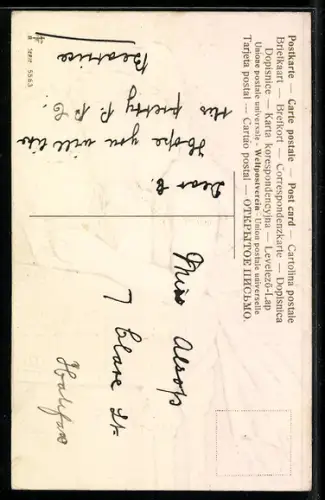 Postkarte — Carte postale — Post card — Cartolina postale
Briefkaart — Brefkort — Correspondenzkarte — Dopisnica
Dopisnice — Karta korespondencyjna — Levelező-Lap
Unione postale universale - Weltpostverein - Union postale universelle
Tarjeta postal — Cartão postal — ОТКРЫТОЕ ПИСЬМО.
Dear E.
Hope you will like
this pretty P. P. C.
Beatrice
Serie 5563
Miss Alsop
7 Clare St.
Halifax